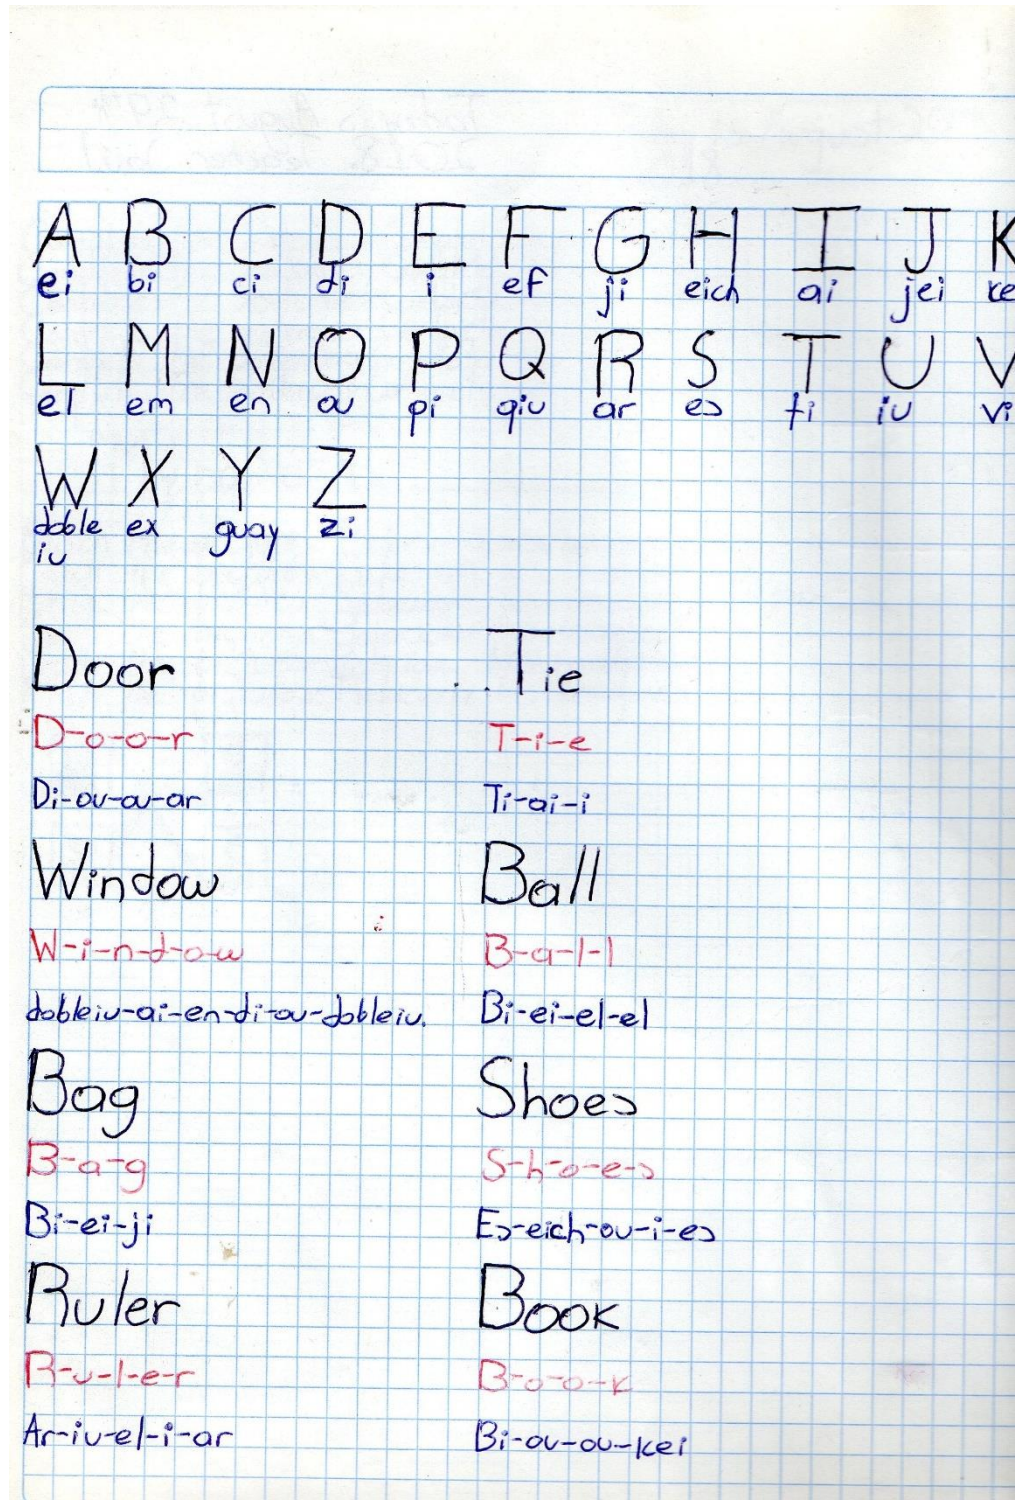 A B C D E F G H I J K
ei bi ci di i ef ji eich ai jei ke
L M N O P Q R S T U V
el em en ou pi qiu ar es ti iu vi
W X Y Z
doble ex guay zi
iu
Door
D-o-o-r
Di-ou-ou-ar
Window
W-i-n-d-o-w
dobleiu-ai-en-di-ou-dobleiu.
Bag
B-a-g
Bi-ei-ji
Ruler
R-u-l-e-r
Ar-iu-el-i-ar
Tie
T-i-e
Ti-ai-i
Ball
B-a-l-l
Bi-ei-el-el
Shoes
S-h-o-e-s
Es-eich-ou-i-es
Book
B-o-o-k
Bi-ou-ou-kei